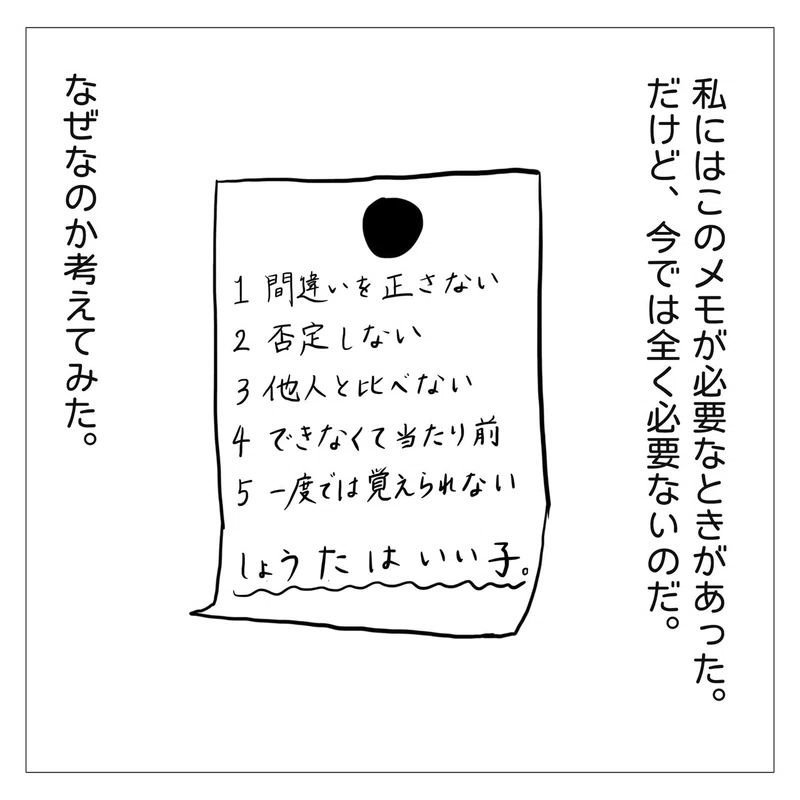 私にはこのメモが必要なときがあった。
だけど、今では全く必要ないのだ。
1 間違いを正さない
2 否定しない
3 他人と比べない
4 できなくて当たり前
5 一度では覚えられない
しょうたはいい子。
なぜなのか考えてみた。